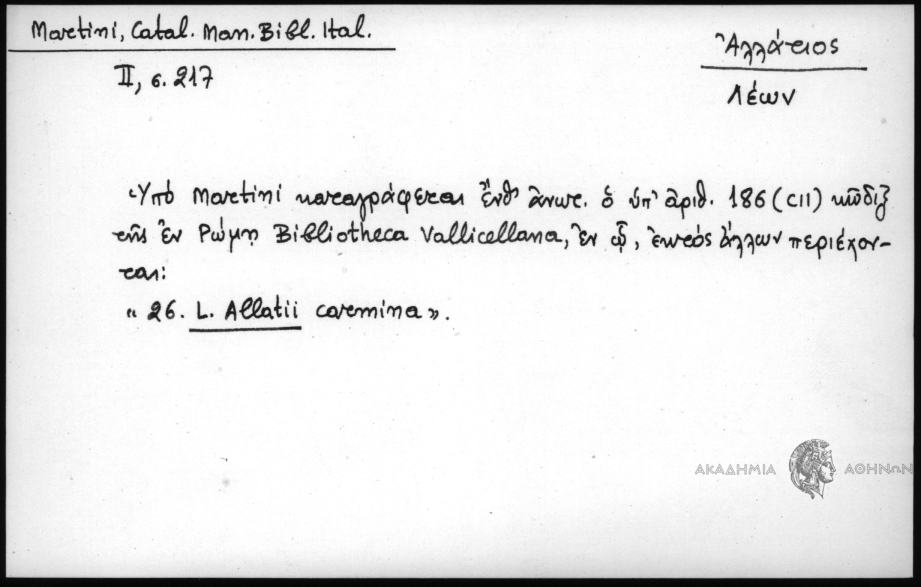 Martini, Catal. Man. Bibl. Ital.
II, σ. 217
Ἀλλάτιος
Λέων
Ὑπὸ Martini καταγράφεται ἔνθ' ἀνωτ. ὁ ὑπ' ἀριθ. 186 (CII) κῶδιξ
τῆς ἐν Ρώμῃ Bibliotheca Vallicellana, ἐν ᾧ, ἐκτὸς ἄλλων περιέχον-
ται:
« 26. L. Allatii carmina».
ΑΚΑΔΗΜΙΑ ΑΘΗΝΩΝ